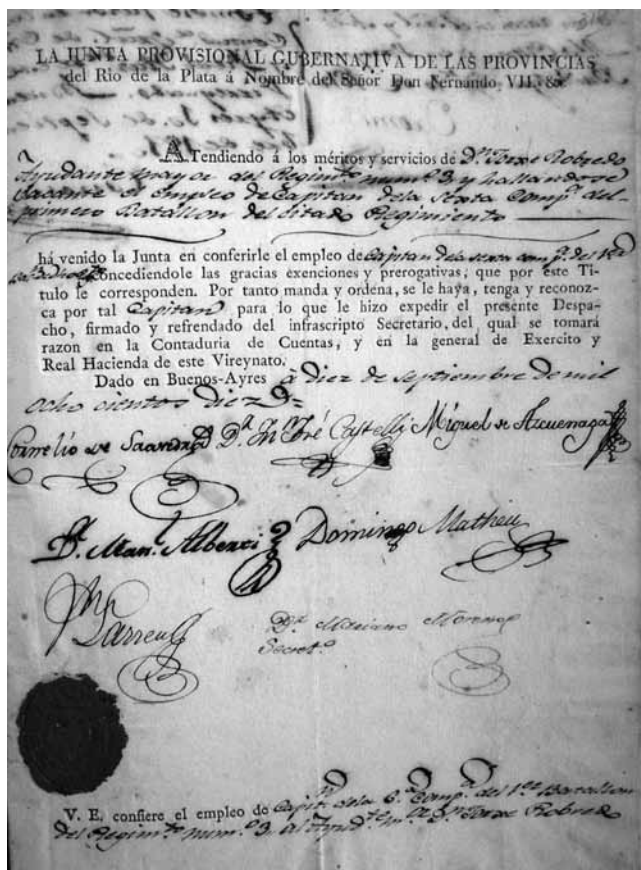 LA JUNTA PROVISIONAL GUBERNATIVA DE LAS PROVINCIAS
del Rio de la Plata á Nombre del Señor Don Fernando VII. &c.
ATendiendo á los méritos y servicios de Dn. Jorxe Robredo
Ayudante mayor del Regimto. numo. 3 y hallandose
vacante el empleo de Capitan dela sexta Compa. del
primero Batallon del citado Regimiento
há venido la Junta en conferirle el empleo de Capitan dela sexta compa. del 1er
concediendole las gracias exenciones y prerogativas, que por este Ti-
tulo le corresponden. Por tanto manda y ordena, se le haya, tenga y reconoz-
ca por tal Capitan para lo que le hizo expedir el presente Despa-
cho, firmado y refrendado del infrascripto Secretario, del qual se tomará
razon en la Contaduria de Cuentas, y en la general de Exercito y
Real Hacienda de este Vireynato.
Dado en Buenos-Ayres à diez de Septiembre de mil
ocho cientos diez
Cornelio de Saavedra Dr. Jn. José Castelli Miguel de Azcuenaga
Dr. Man. l Alberti Domingo Matheu
Jn Larrea
Dr. Mariano Moreno
Secreto.
V. E. confiere el empleo de Capitn. dela 6.a Compa. del 1er. Batallon
del Regimto. numo. 3 al Ayudte. mor. Dn Jorxe Robredo